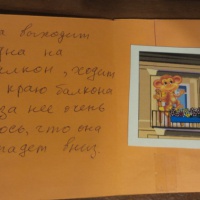 а выходит
одна на
алкон, ходит
краю балкона
за нее очень
юсь, что она
падет вниз.